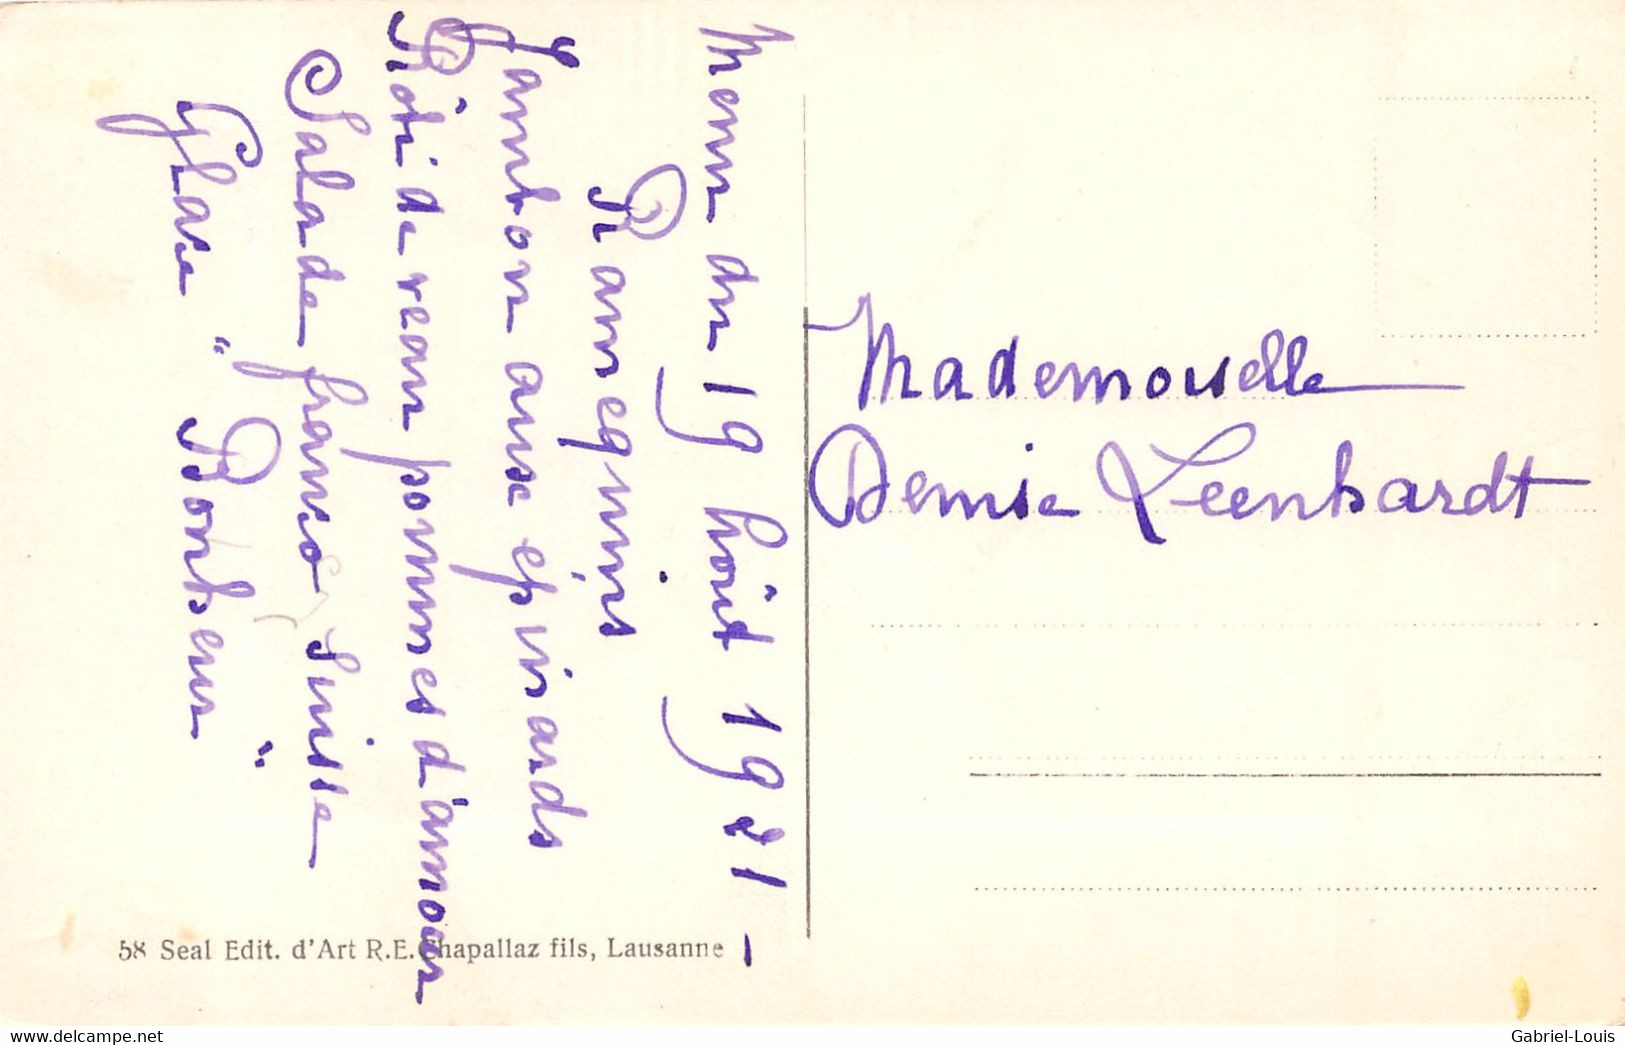 Menu du 19 Août 1921 -
Ramequins
Jambon aux epinards
Rôti de veau pommes d'amour
Salade franco suisse
Glace "Bonheur"
Mademoiselle
Denise Leenhardt
58 Seal Edit. d'Art R.E. Chapallaz fils, Lausanne
delcampe.net
Gabriel-Louis